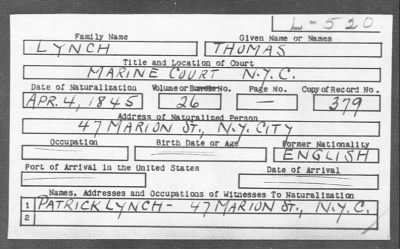 L-520
Family Name Given Name or Names
LYNCH THOMAS
Title and Location of Court
MARINE COURT N.Y.C.
Date of Naturalization Volume or Bundle No. Page No. Copy of Record No.
APR. 4, 1845 26 — 379
Address of Naturalized Person
47 MARION ST., N.Y. CITY
Occupation Birth Date or Age Former Nationality
ENGLISH
Port of Arrival in the United States Date of Arrival
Names, Addresses and Occupations of Witnesses To Naturalization
1 PATRICK LYNCH - 47 MARION ST., N.Y.C.
2